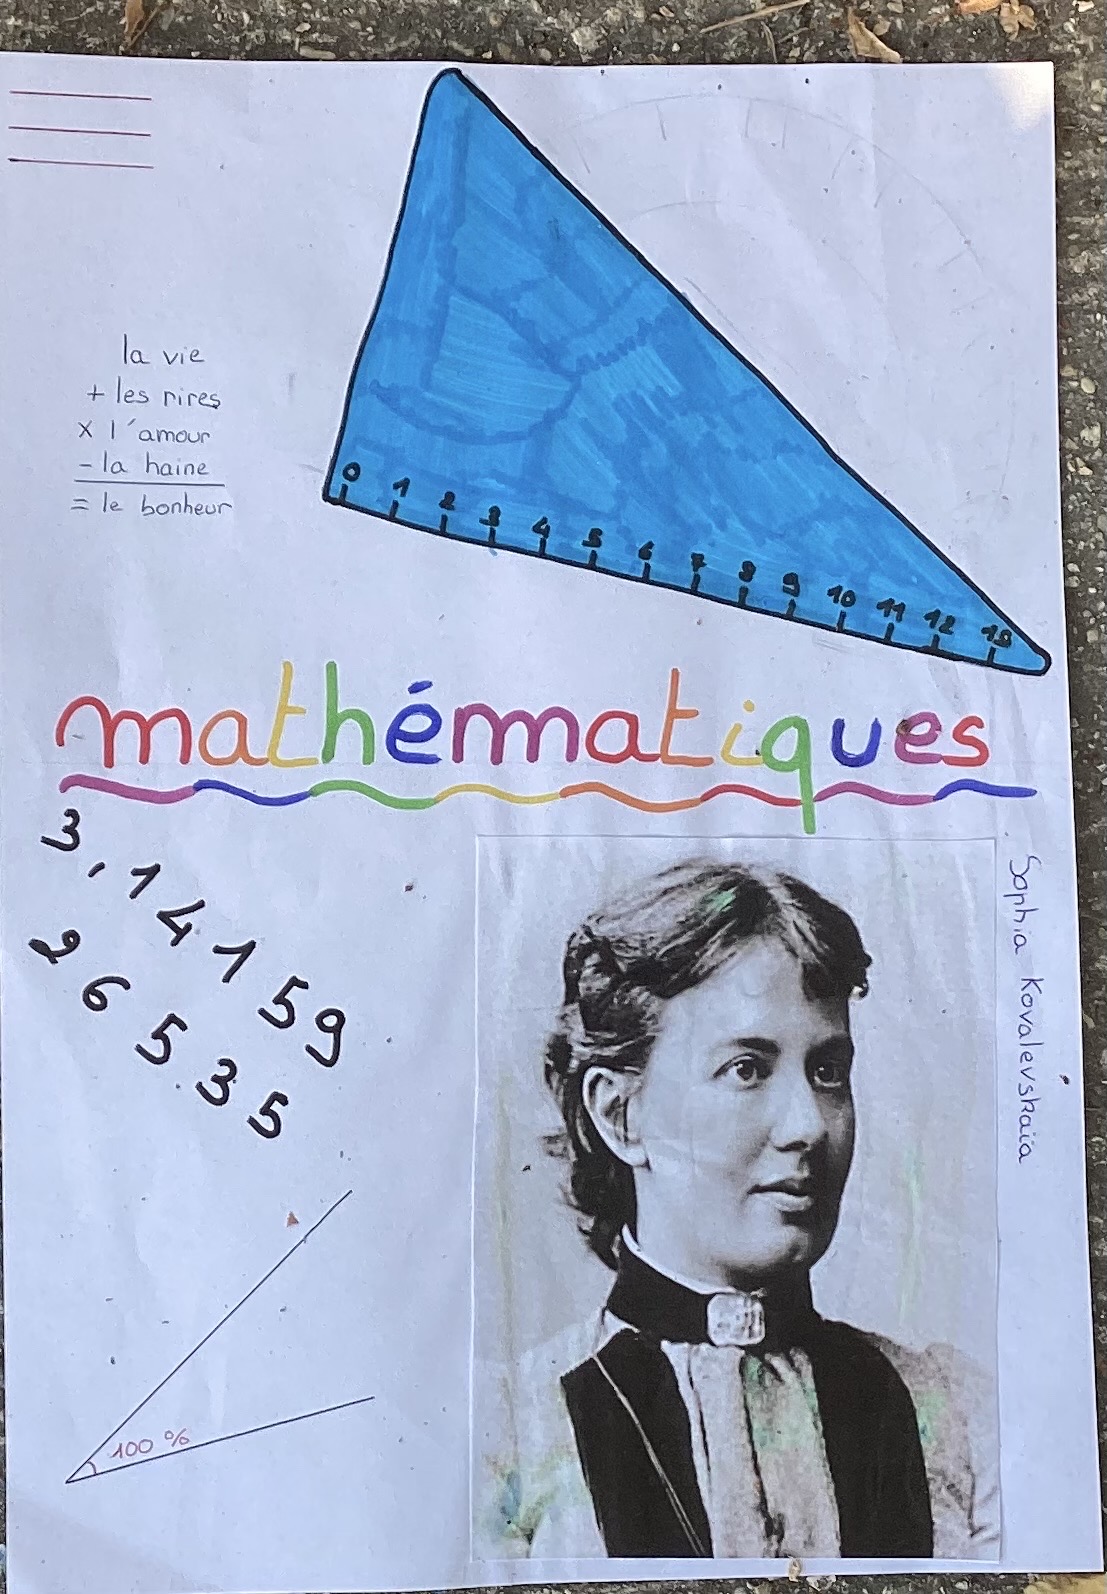 la vie
+ les rires
x l'amour
- la haine
= le bonheur
0 1 2 3 4 5 6 7 8 9 10 11 12 13
mathématiques
3,14159
26535
Sophia Kovalevskaïa
100 %